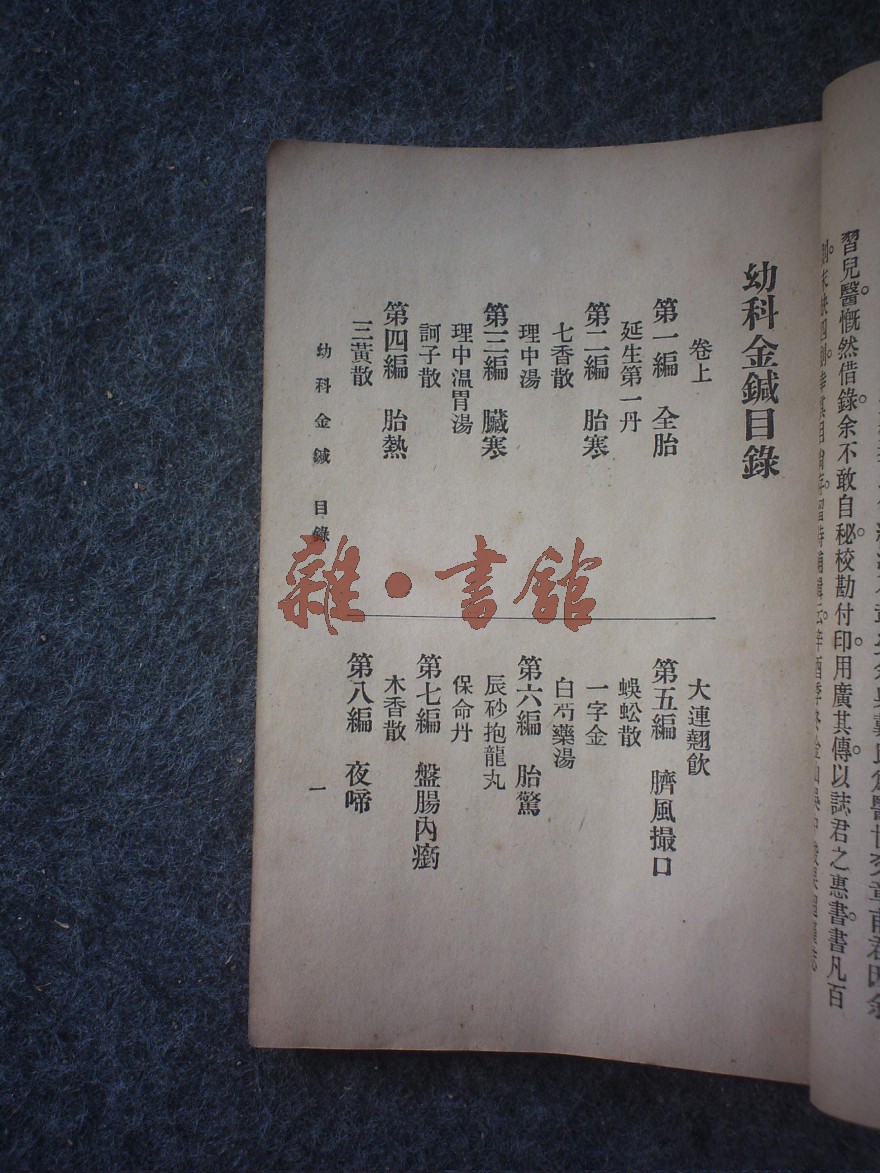 習兒醫。慨然借錄。余不敢自秘。校勘付印。用廣其傳。以誌君之惠。書凡百
幼科金鍼目錄
卷上
第一編　全胎
延生第一丹
第二編　胎寒
七香散
理中湯
第三編　臟寒
理中温胃湯
訶子散
第四編　胎熱
三黃散
大連翹飲
第五編　臍風撮口
蜈蚣散
一字金
白芍藥湯
第六編　胎驚
辰砂抱龍丸
保命丹
第七編　盤腸內癎
木香散
第八編　夜啼
幼科金鍼　目錄
一
雜·書館